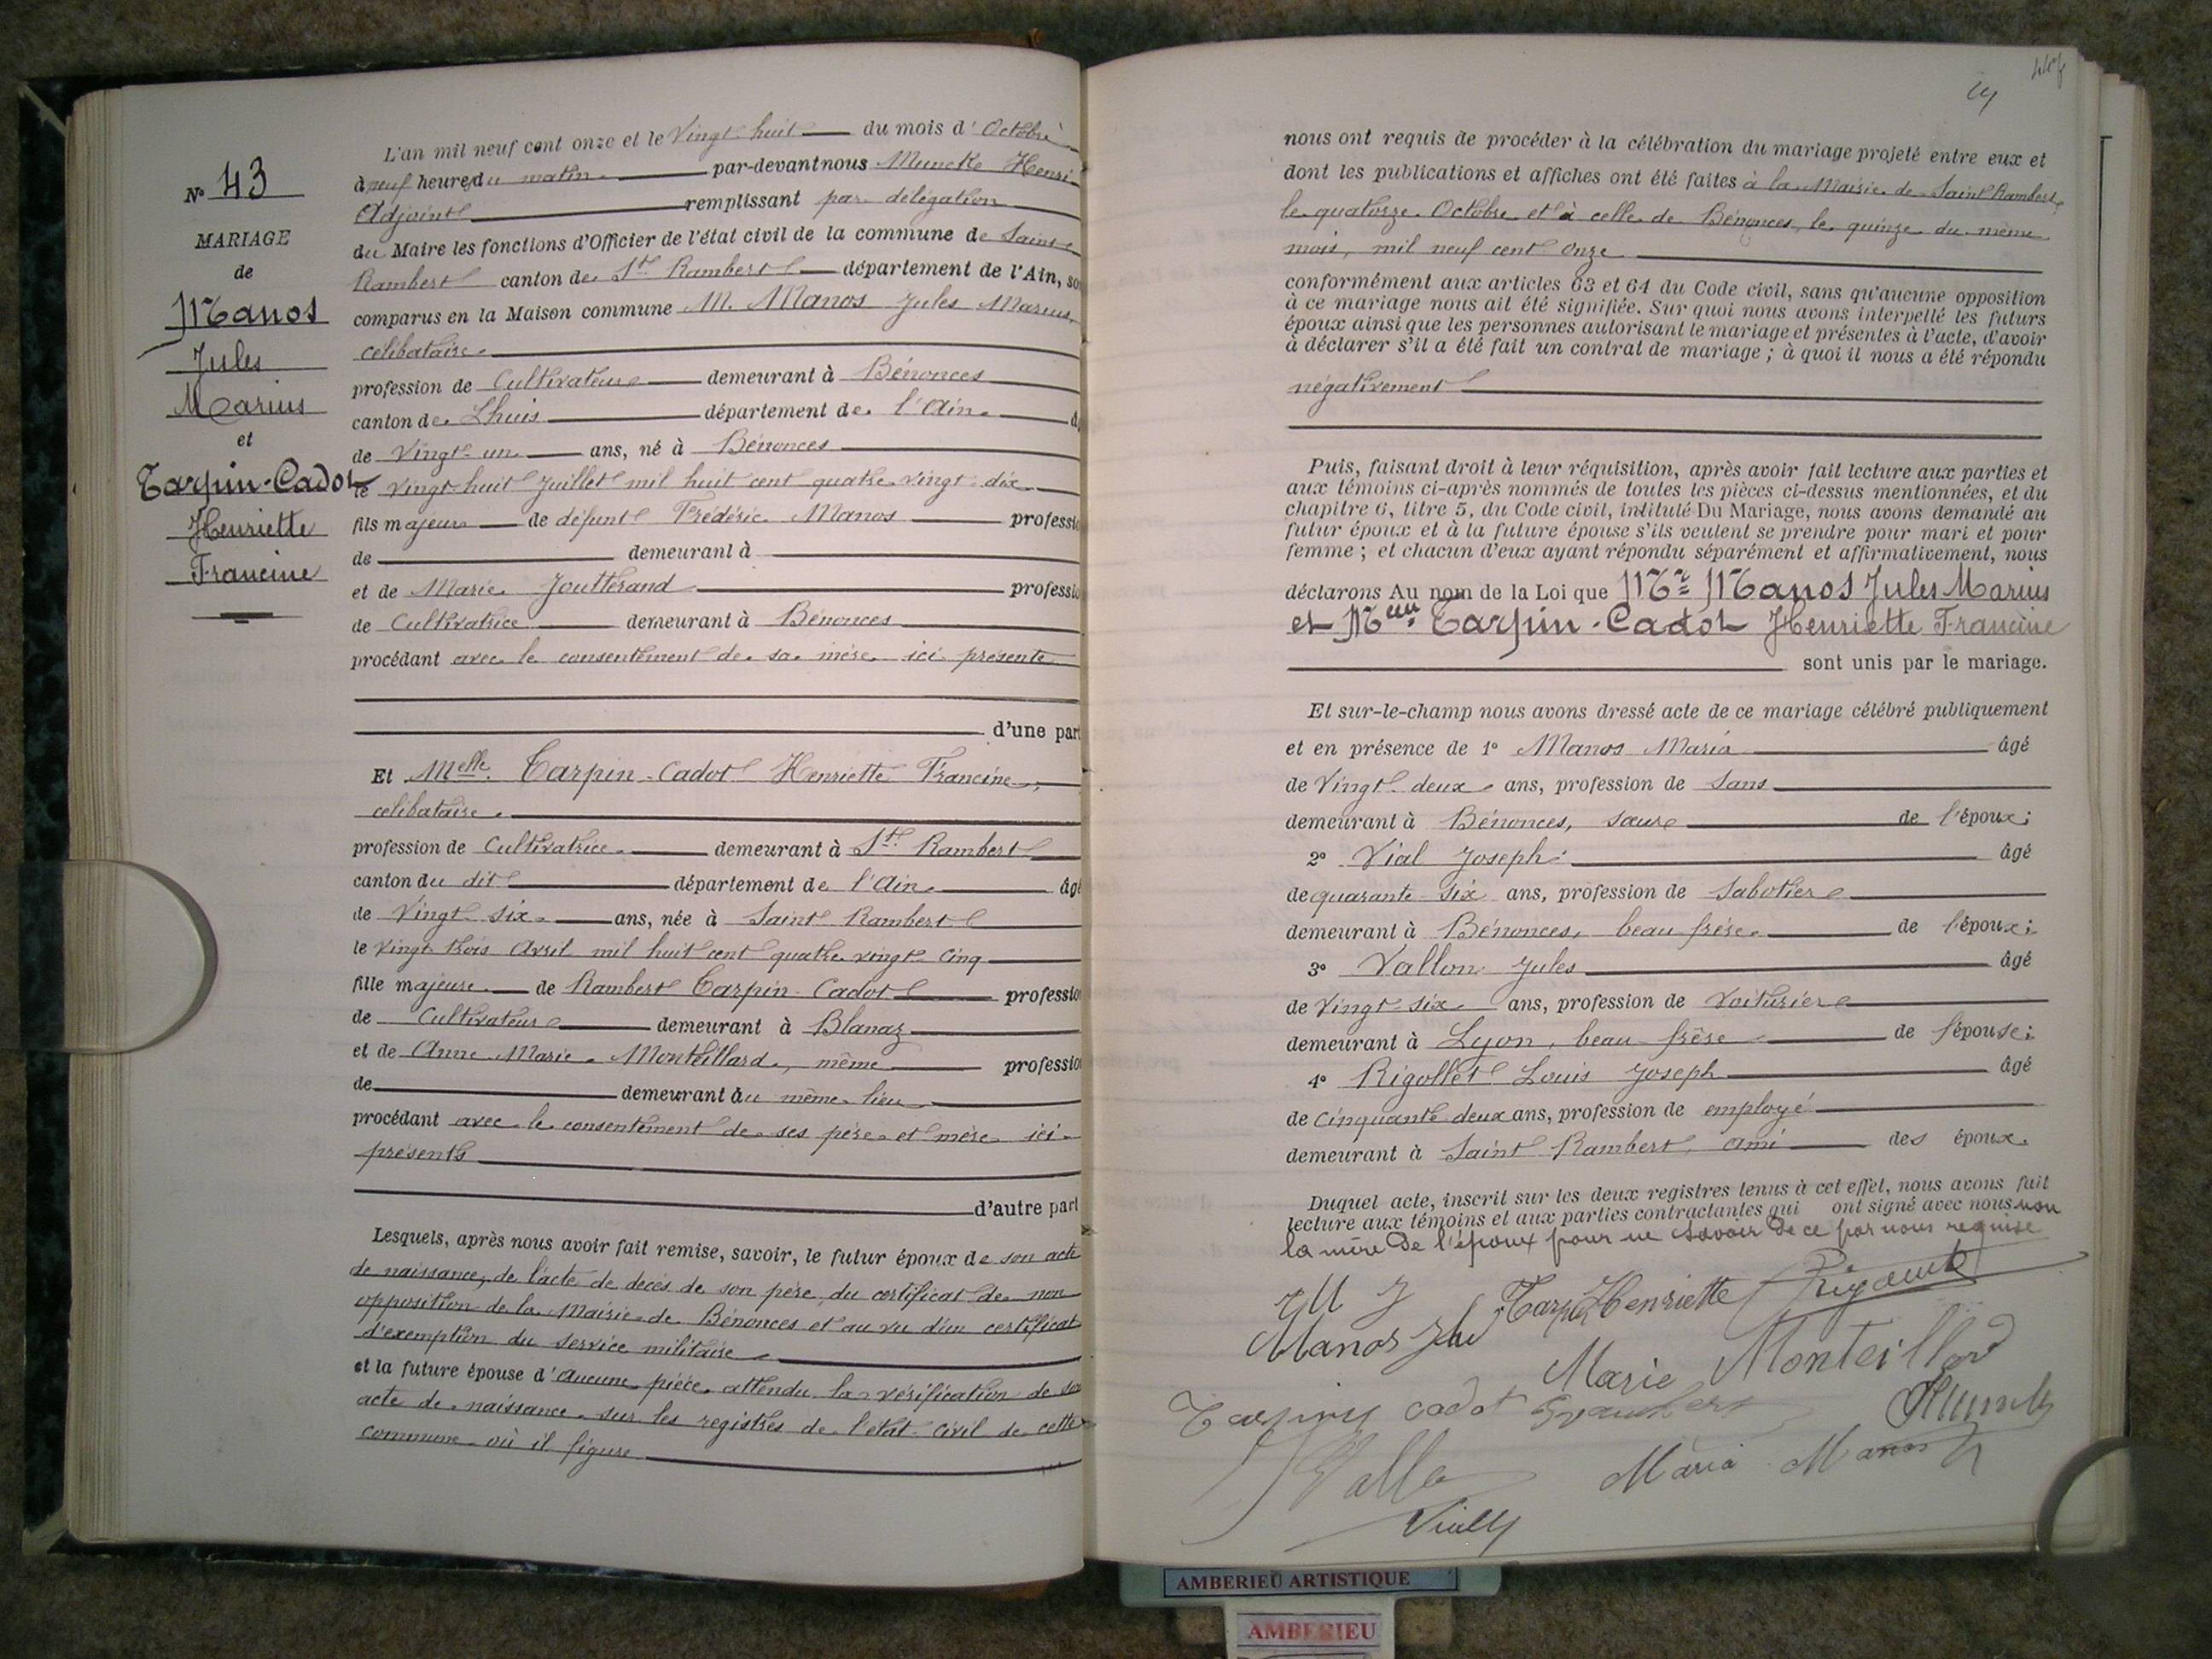 N° 43
MARIAGE
de
Manos
Jules
Marius
et
Tarpin-Cadot
Henriette
Francine
L'an mil neuf cent onze et le Vingt-huit du mois d'Octobre
à neuf heures du matin par-devant nous Muncke Henri
Adjoint remplissant par délégation
du Maire les fonctions d'Officier de l'état civil de la commune de Saint
Rambert canton de St Rambert département de l'Ain, so
comparus en la Maison commune M. Manos Jules Marius,
célibataire
profession de Cultivateur demeurant à Bénonces
canton de Lhuis département de l'Ain
de Vingt-un ans, né à Bénonces
le vingt-huit Juillet mil huit cent quatre-vingt-dix
fils majeur de défunt Frédéric Manos professio
de demeurant à
et de Marie Joutterand professio
de Cultivatrice demeurant à Bénonces
procédant avec le consentement de sa mère ici présente
d'une part
Et Melle Tarpin-Cadot Henriette Francine,
célibataire
profession de Cultivatrice demeurant à St Rambert
canton du dit département de l'Ain âgé
de Vingt-six ans, née à Saint Rambert
le vingt-trois Avril mil huit cent quatre-vingt-cinq
fille majeure de Rambert Tarpin-Cadot professio
de Cultivateur demeurant à Blanaz
et de Anne Marie Monteillard, même professio
de demeurant au même lieu
procédant avec le consentement de ses père et mère ici
présents
d'autre part
Lesquels, après nous avoir fait remise, savoir, le futur époux de son acte
de naissance, de l'acte de décès de son père, du certificat de non
opposition de la Mairie de Bénonces et au vu d'un certificat
d'exemption du service militaire
et la future épouse d'aucune pièce, attendu la vérification de son
acte de naissance sur les registres de l'état civil de cette
commune où il figure
nous ont requis de procéder à la célébration du mariage projeté entre eux et
dont les publications et affiches ont été faites à la Mairie de Saint Rambert,
le quatorze Octobre et à celle de Bénonces, le quinze du même
mois, mil neuf cent onze
conformément aux articles 63 et 64 du Code civil, sans qu'aucune opposition
à ce mariage nous ait été signifiée. Sur quoi nous avons interpellé les futurs
époux ainsi que les personnes autorisant le mariage et présentes à l'acte, d'avoir
à déclarer s'il a été fait un contrat de mariage ; à quoi il nous a été répondu
négativement
Puis, faisant droit à leur réquisition, après avoir fait lecture aux parties et
aux témoins ci-après nommés de toutes les pièces ci-dessus mentionnées, et du
chapitre 6, titre 5, du Code civil, intitulé Du Mariage, nous avons demandé au
futur époux et à la future épouse s'ils veulent se prendre pour mari et pour
femme ; et chacun d'eux ayant répondu séparément et affirmativement, nous
déclarons Au nom de la Loi que Mr Manos Jules Marius
et Melle Tarpin-Cadot Henriette Francine
sont unis par le mariage.
Et sur-le-champ nous avons dressé acte de ce mariage célébré publiquement
et en présence de 1° Manos Maria âgé
de Vingt-deux ans, profession de Sans
demeurant à Bénonces, sœur de l'époux ;
2° Vial Joseph âgé
de quarante-six ans, profession de Sabotier
demeurant à Bénonces, beau-frère de l'époux ;
3° Vallon Jules âgé
de Vingt-six ans, profession de Voiturier
demeurant à Lyon, beau-frère de l'épouse ;
4° Rigollet Louis Joseph âgé
de Cinquante-deux ans, profession de employé
demeurant à Saint Rambert, ami des époux.
Duquel acte, inscrit sur les deux registres tenus à cet effet, nous avons fait
lecture aux témoins et aux parties contractantes qui ont signé avec nous non
la mère de l'époux pour ne savoir de ce par nous requise
Henriette
Manos
Marie Monteillard
cadot
Maria Manos
AMBERIEU ARTISTIQUE
AMBERIEU